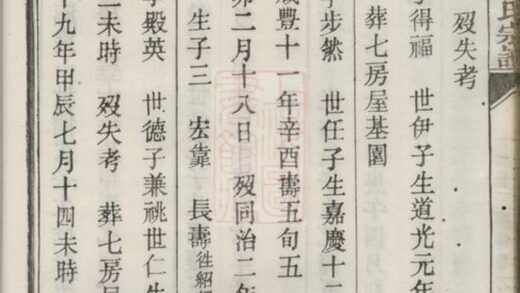 氏宗譜
歿失考
字得福 世伊子生道光元年
葬七房屋基園
字步然 世任子生嘉慶十二
咸豐十一年辛酉壽五旬五
二月十八日 歿同治二年
生子三 宏靠 長壽徃紹
字殿英 世德子兼祧世仁生
未時 歿失考 葬七房屋
十九年甲辰七月十四未時